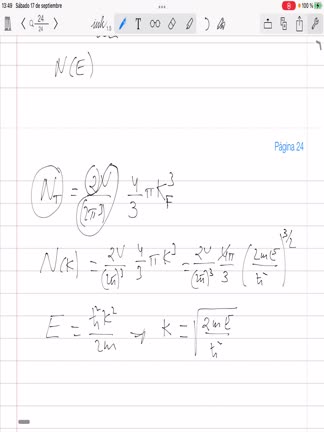 13:49 Sábado 17 de septiembre
100 %
24
24
1.5
N(E)
Página 24
N_T = 2V/(2π3) 4/3 πK_F^3
N(K) = 2V/(2π)^3 4/3 πK^3 = 2V/(2π)^3 4π/3 (2mE/ħ^2)^3/2
E = ħ^2K^2/2m → K = √(2mE/ħ^2)